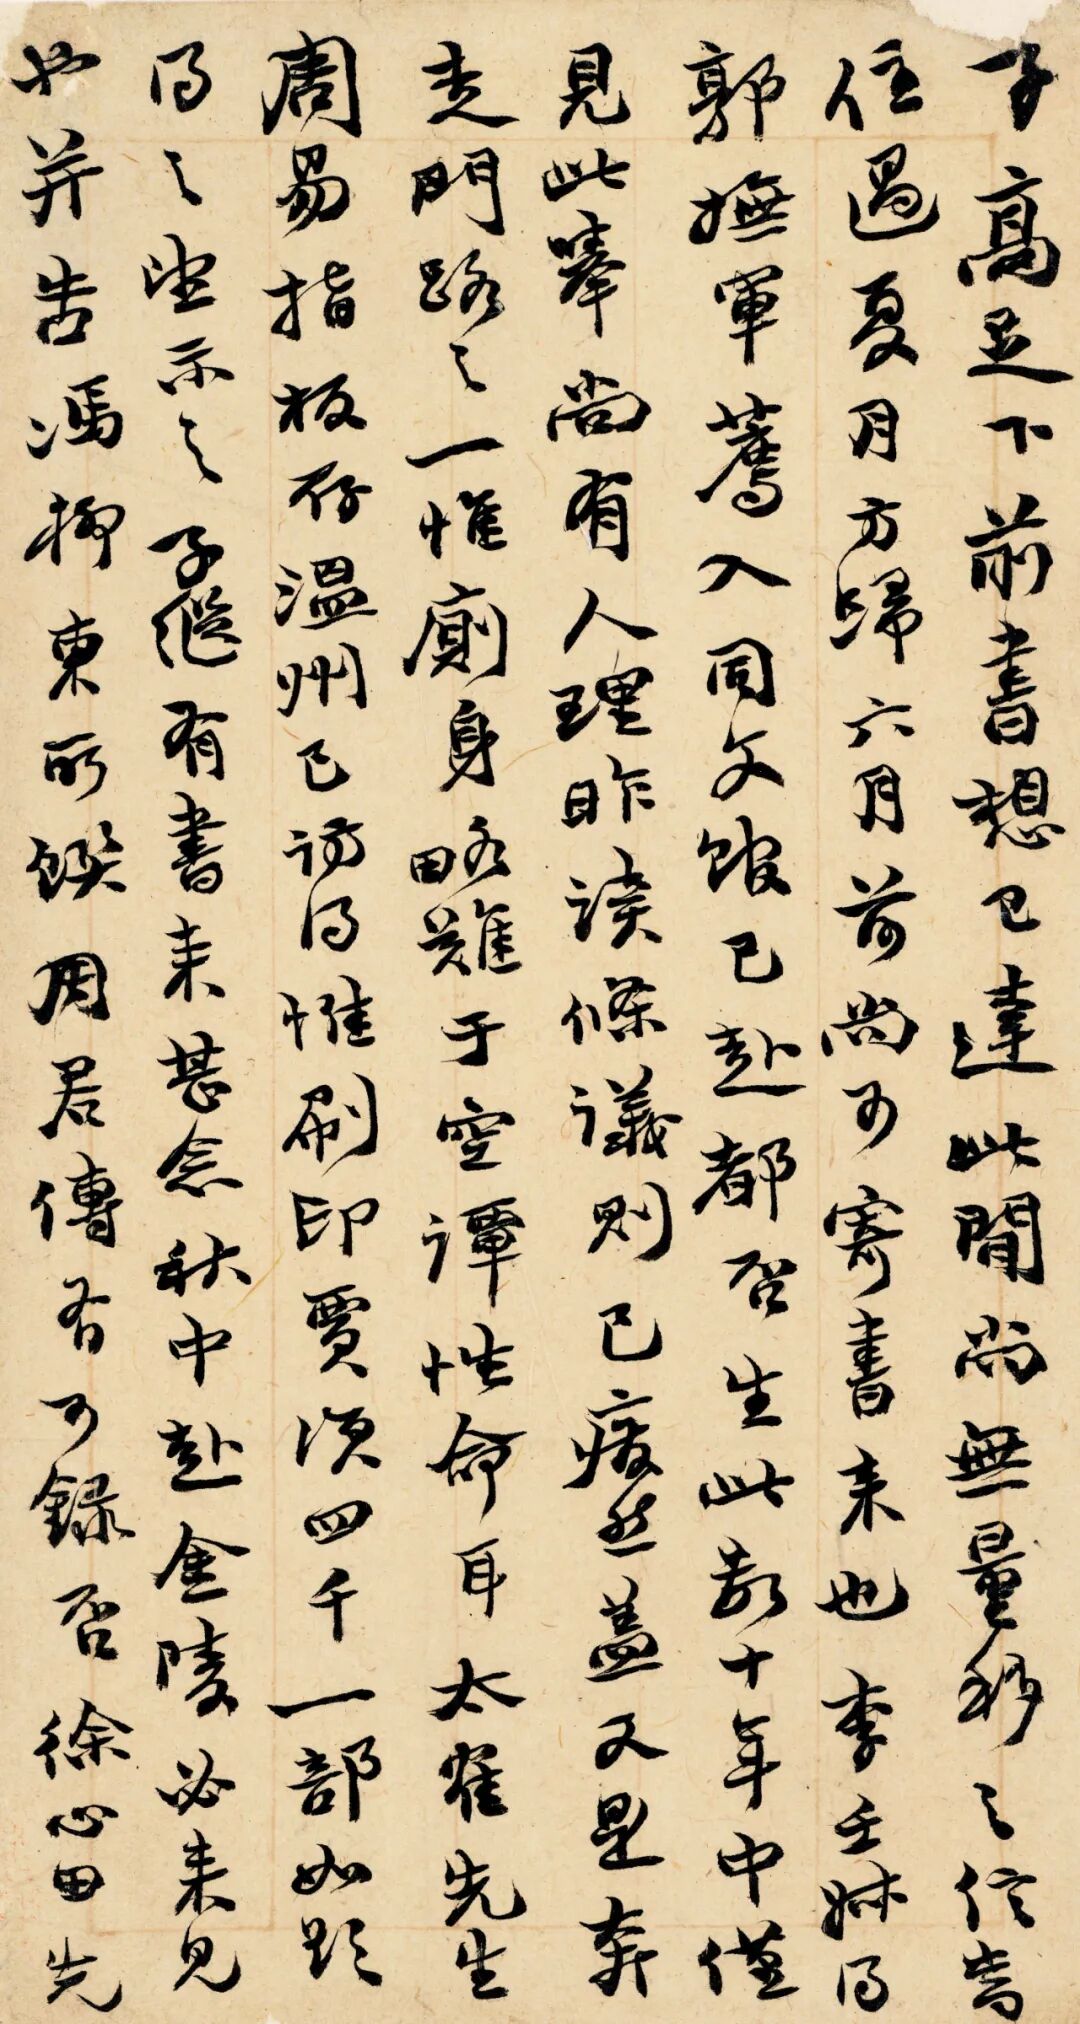 子高足下前書想已達此間尚無量移之信當
住過夏月方歸六月前尚可寄書来也李壬叔得
郭撫軍薦入同文館已赴都否生此數十年中僅
見此舉尚有人理昨讀條議則已癈然蓋又是奔
走門路之一惟廁身略難于空譚性命耳太崔先生
周易指板存温州已訪得惟刷印賈須四千一部如欲
得之望示之子繼有書来甚念秋中赴金陵必来見
也并告馮柳東所饌周君傳有可録否徐心田先